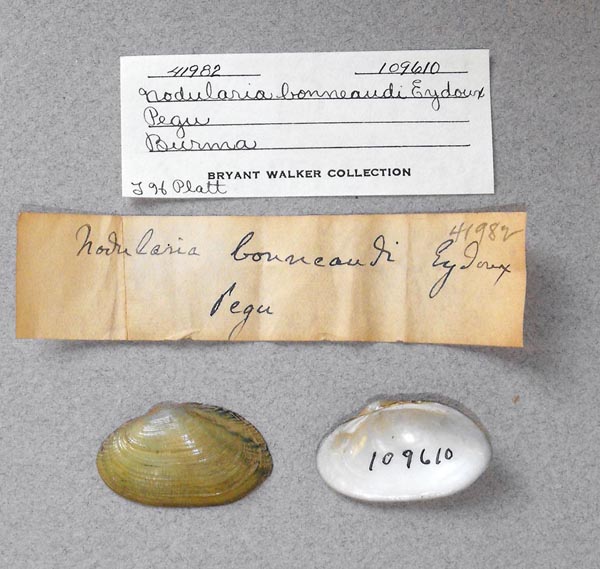 41982 109610
Nodularia bonneaudi Eydoux
Pegu
Burma
BRYANT WALKER COLLECTION
J H Platt
41982
Nodularia bonneaudi Eydoux
Pegu
109610